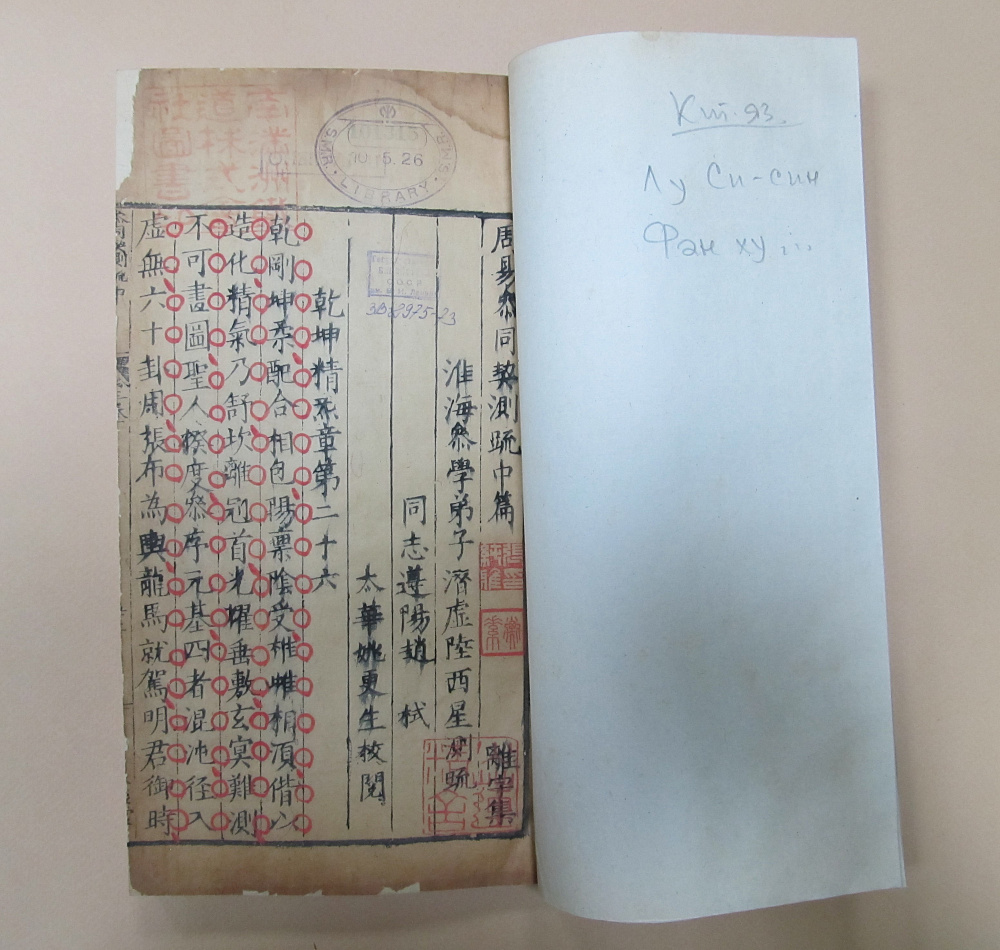 周易叅同契測疏中篇
離字集
淮海叅學弟子濟虛陸西星測疏
同志遵陽趙 栻
太華姚更生校閱
乾坤精炁章第二十六
乾剛坤柔配合相包陽稟陰受雄雌相湏偕以
造化精氣乃舒坎離冠首光耀垂敷玄冥難測
不可畫圖聖人揆度叅序元基四者混沌徑入
虛無六十卦周張布為輿龍馬就駕明君御時
S.M.R.
10.5.26
LIBRARY
Кит. яз.
Лу Си-син
Фан ху